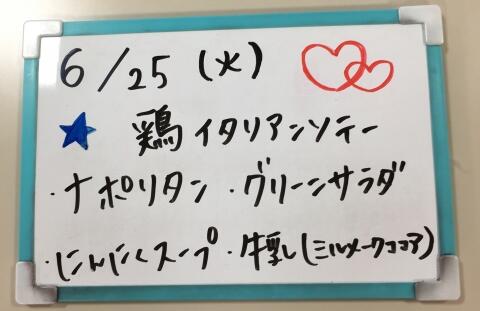 6/25(火)
鶏イタリアンソテー
・ナポリタン ・グリーンサラダ
・にんにくスープ ・牛乳(ミルメークココア)